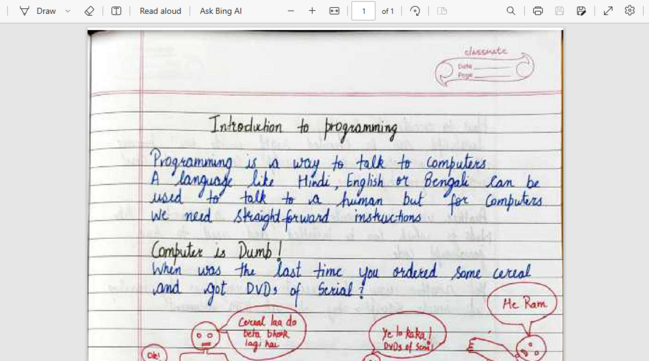 Draw
Read aloud
Ask Bing AI
1
of 1
classmate
Date
Page
Introduction to programming
Programming is a way to talk to computers
A language like Hindi, English or Bengali can be
used to talk to a human but for computers
we need straightforward instructions
Computer is Dumb!
When was the last time you ordered some cereal
and got DVDs of Serial?
Cereal laa do
beta bhook
lagi hai
Ye lo kaka!
DVDs of serial
He Ram
Ok!